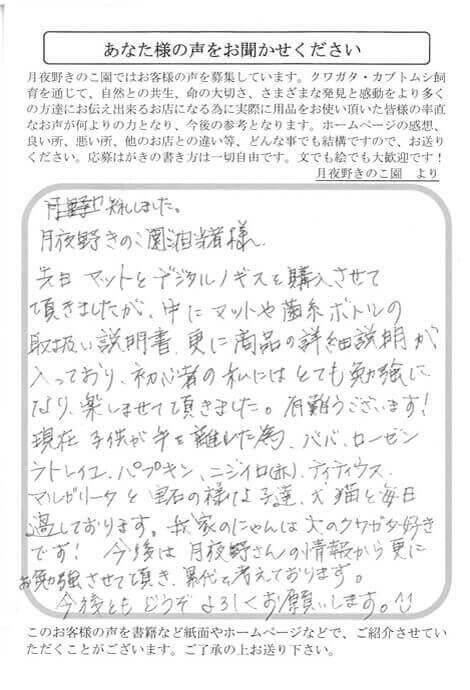 あなた様の声をお聞かせください
月夜野きのこ園ではお客様の声を募集しています。クワガタ・カブトムシ飼
育を通じて、自然との共生、命の大切さ、さまざまな発見と感動をより多く
の方達にお伝え出来るお店になる為に実際に用品をお使い頂いた皆様の率直
なお声が何よりの力となり、今後の参考となります。ホームページの感想、
良い所、悪い所、他のお店との違い等、どんな事でも結構ですので、お送り
ください。応募はがきの書き方は一切自由です。文でも絵でも大歓迎です！
月夜野きのこ園　より
失礼しました。
月夜野きのこ園ご担当者様
先日 マットとデジタルノギスを購入させて
頂きましたが、中にマットや菌糸ボトルの
取扱い説明書、更に商品の詳細説明が
入っており、初心者の私にはとても勉強に
なり、楽しませて頂きました。有難うございます！
現在 子供が手を離した為、ババ・ローゼン
ラトレイユ、パプキン、ニジイロ(赤)、ティティウス、
マルゼリータと宝石の様な子達、犬猫と毎日
過しております。我家のにゃんは大のクワガタ好き
です！ 今後は月夜野さんの情報から更に
お勉強させて頂き、累代も考えております。
今後とも どうぞ よろしくお願いします。
このお客様の声を書籍など紙面やホームページなどで、ご紹介させてい
ただくことがございます。ご了承の上お送り下さい。